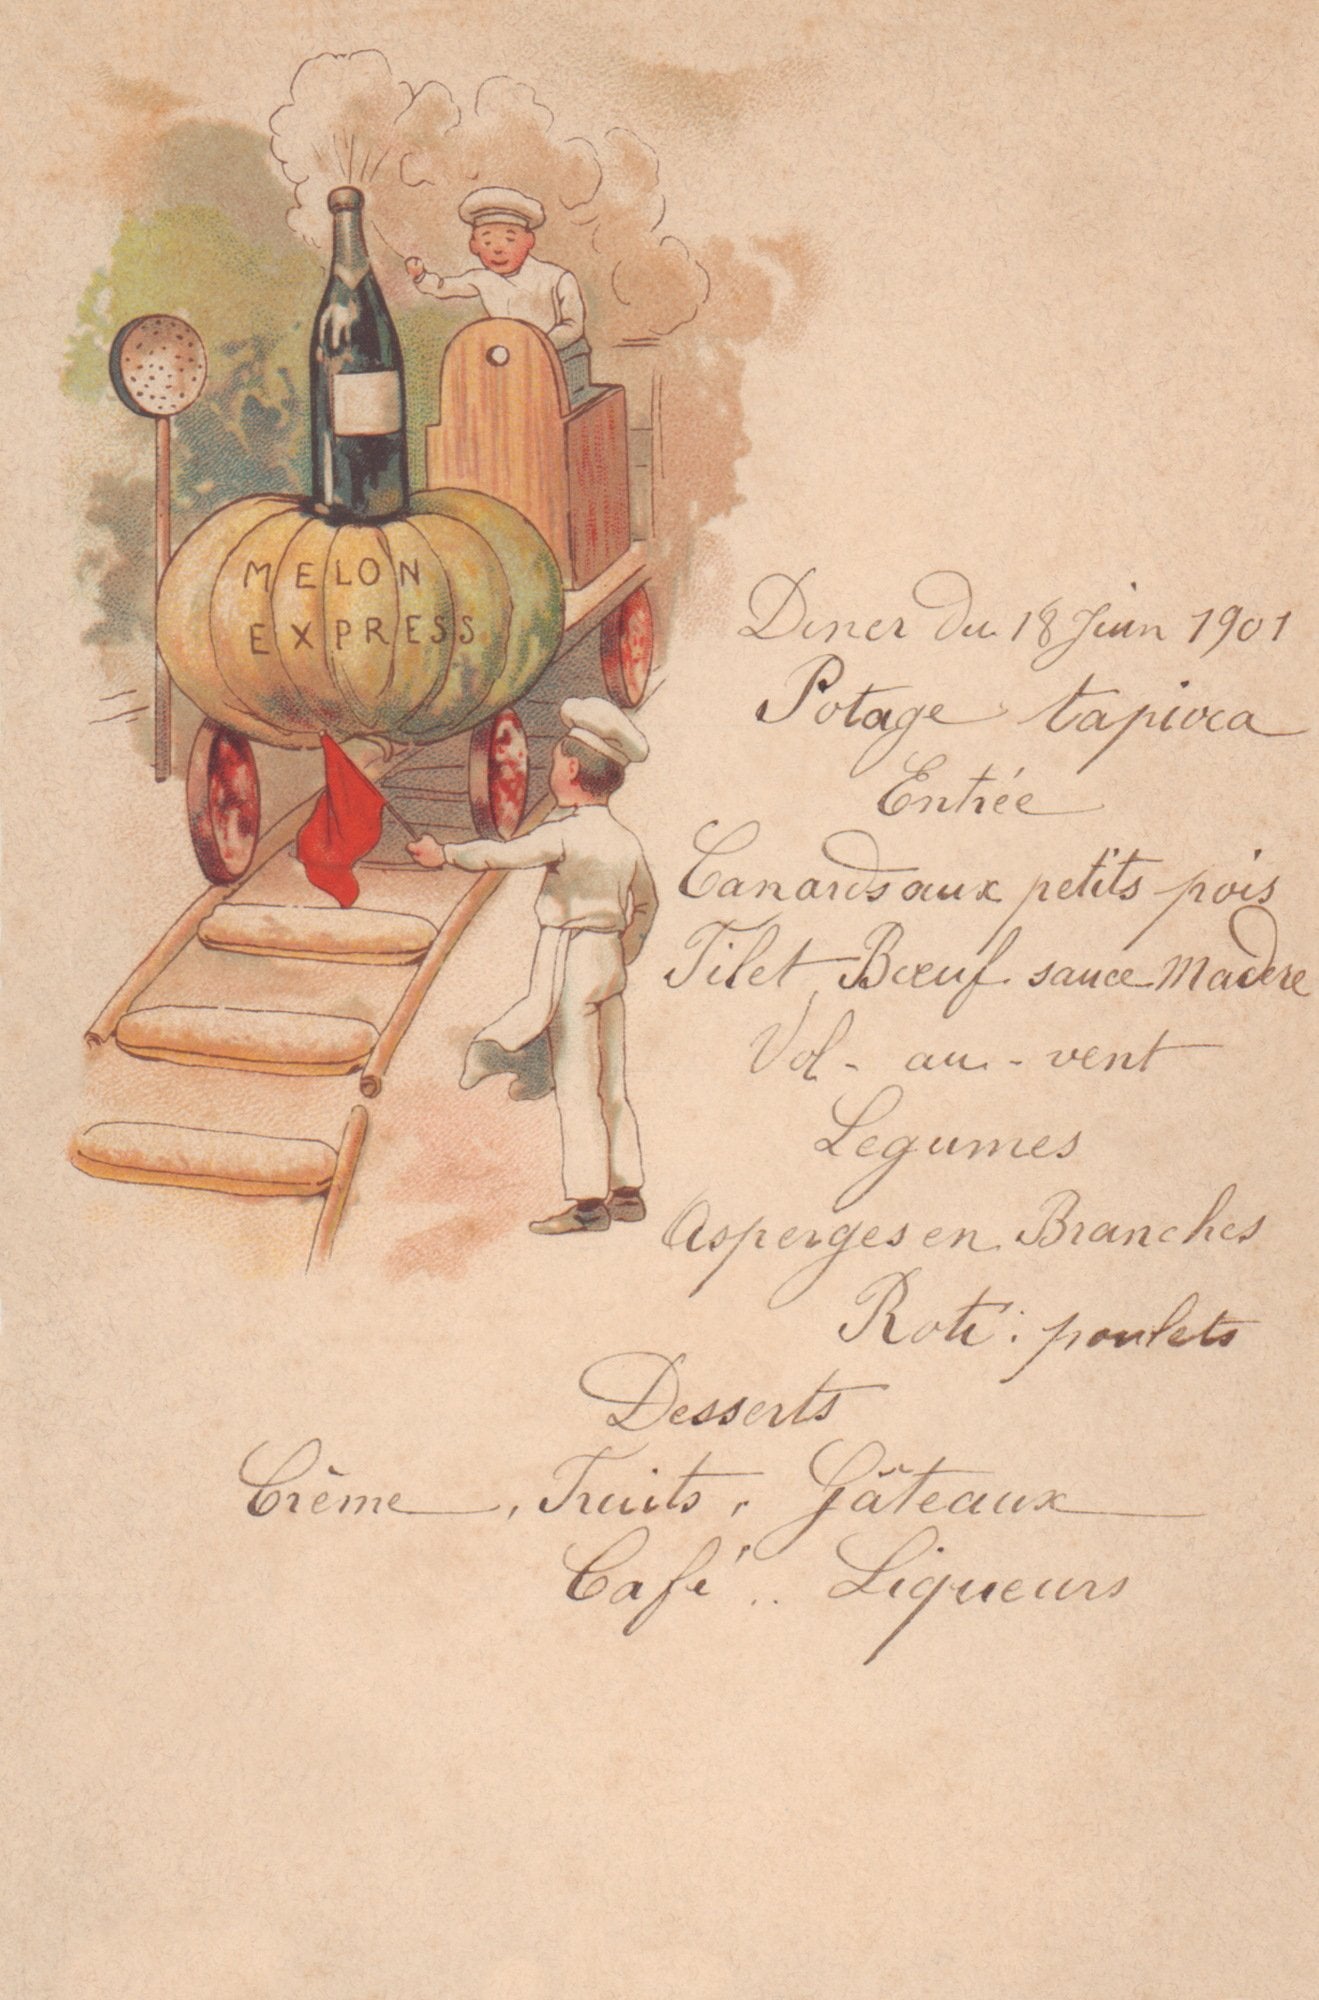 MELON
EXPRESS
Diner du 18 Juin 1901
Potage tapioca
Entrée
Canards aux petits pois
Filet Bœuf sauce Madère
Vol-au-vent
Legumes
Asperges en Branches
Roti : poulets
Desserts
Crème, Fruits, Gâteaux
Café .. Liqueurs